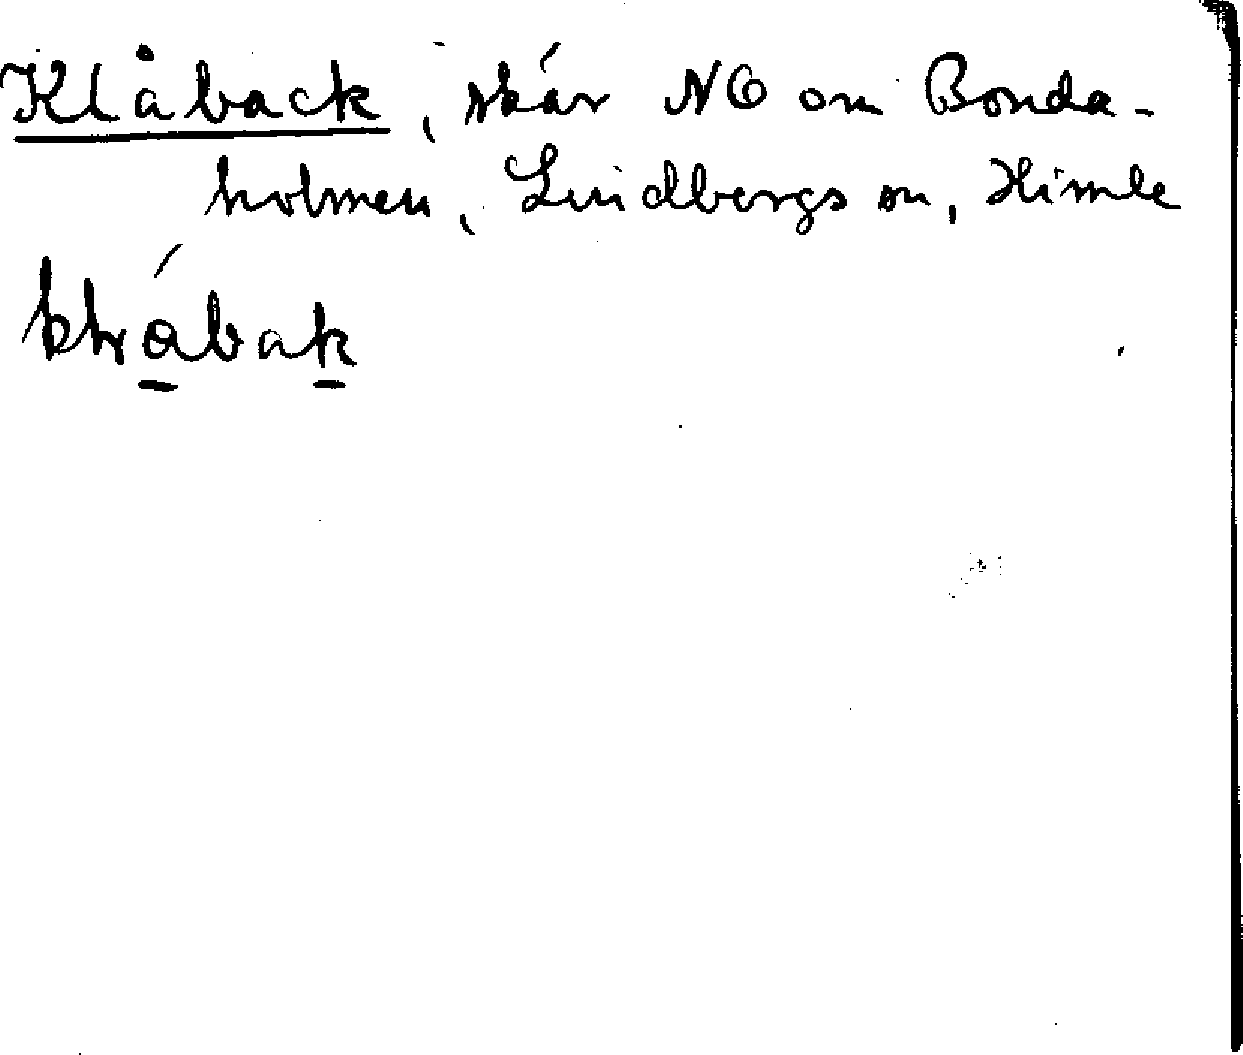 Klåback, skär NO om Bonda-
holmen, Lindbergs sn, Himle